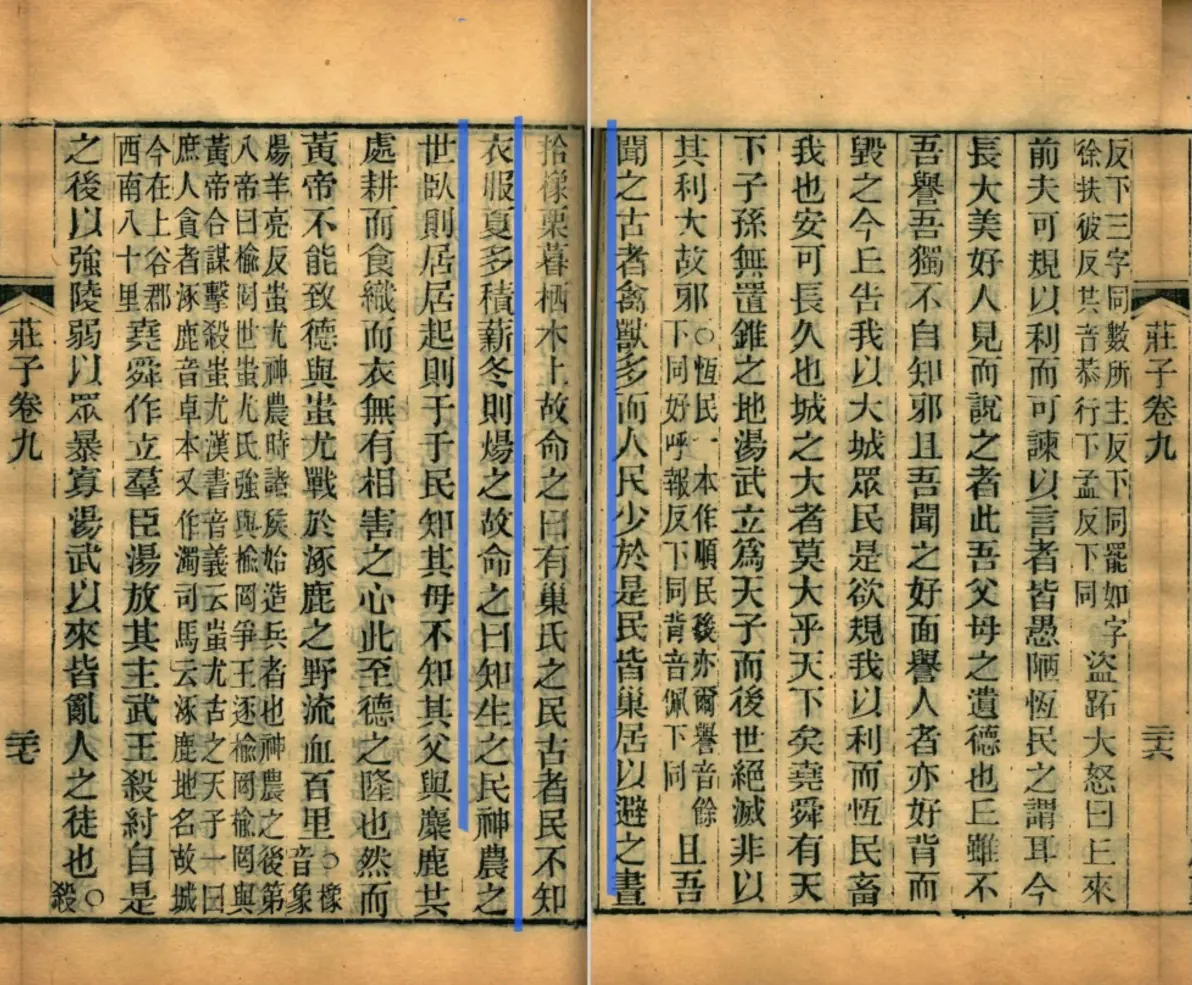 反下三字同數所主反下同罷如字
徐扶彼反其音恭行下孟反下同
盜跖大怒曰丘來
前夫可規以利而可諫以言者皆愚陋恆民之謂耳今
長大美好人見而說之者此吾父母之遺德也丘雖不
吾譽吾獨不自知邪且吾聞之好面譽人者亦好背而
毀之今丘告我以大城眾民是欲規我以利而恆民畜
我也安可長久也城之大者莫大乎天下矣堯舜有天
下子孫無置錐之地湯武立爲天子而後世絕滅非以
其利大故邪
○恆民一本作順民後亦爾譽音餘
下同好呼報反下同背音佩下同
且吾
聞之古者禽獸多而人民少於是民皆巢居以避之晝
莊子卷九
三十六
拾橡栗暮栖木上故命之曰有巢氏之民古者民不知
衣服夏多積薪冬則煬之故命之曰知生之民神農之
世臥則居居起則于于民知其母不知其父與麋鹿共
處耕而食織而衣無有相害之心此至德之隆也然而
黃帝不能致德與蚩尤戰於涿鹿之野流血百里
○橡
音象
煬羊亮反蚩尤神農時諸侯始造兵者也神農之後第
八帝曰榆罔世蚩尤氏強與榆罔爭王逐榆罔榆罔與
黃帝合謀擊殺蚩尤漢書音義云蚩尤古之天子一曰
庶人貪者涿鹿音卓本又作濁司馬云涿鹿地名故城
今在上谷郡
西南八十里
堯舜作立羣臣湯放其主武王殺紂自是
之後以強陵弱以眾暴寡湯武以來皆亂人之徒也
○
殺
莊子卷九
三十七